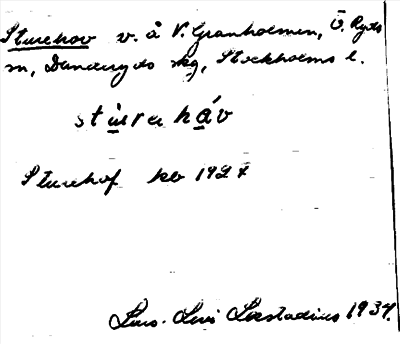 Sturehov v. å V. Granholmen, Ö. Ryds
sn, Danderyds skg, Stockholms l.
stu̲ra há̲v
Sturehof kb 1927
Lars-Levi Læstadius 1937.